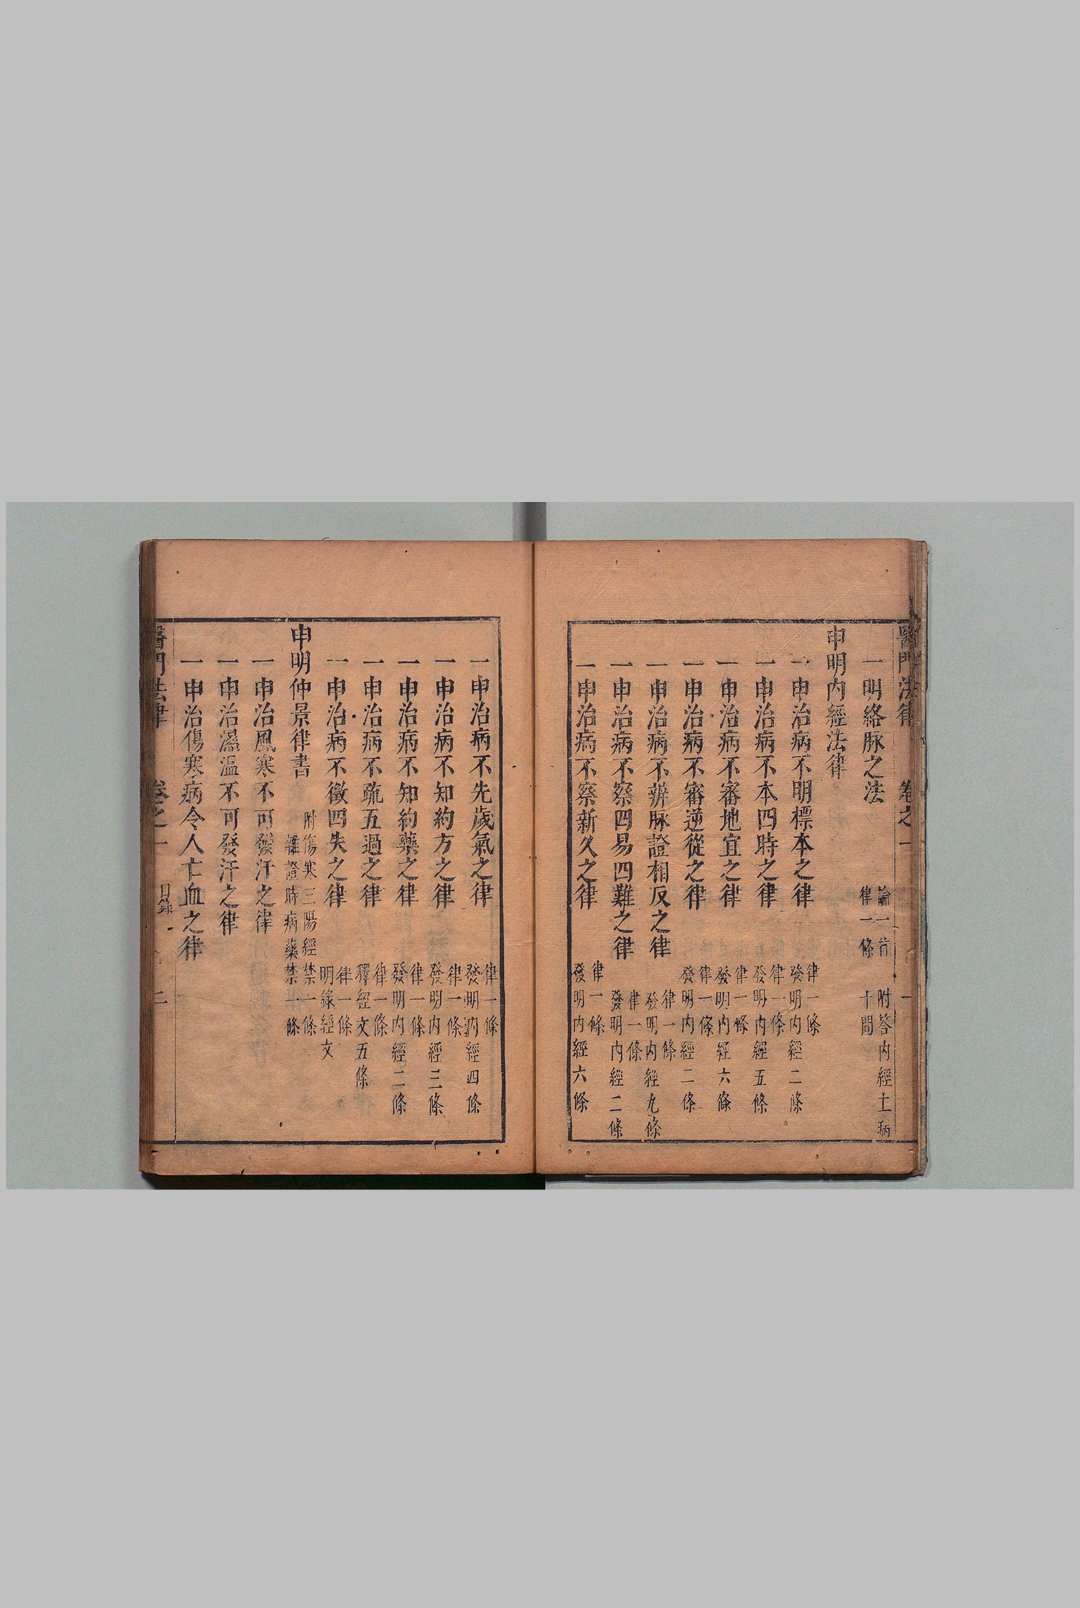 醫門法律 卷之一 一
一明絡脉之法 論一首 律一條 附答內經十二問
申明內經法律
一申治病不明標本之律 律一條 發明內經二條
一申治病不本四時之律 律一條 發明內經五條
一申治病不審地宜之律 律一條 發明內經六條
一申治病不審逆從之律 律一條 發明內經二條
一申治病不辨脉證相反之律 律一條 發明內經九條
一申治病不察四易四難之律 律一條 發明內經二條
一申治病不察新久之律 律一條 發明內經六條
一申治病不先歲氣之律 律一條 發明內經四條
一申治病不知約方之律 律一條 發明內經三條
一申治病不知約藥之律 律一條 發明內經二條
一申治病不疏五過之律 律一條 釋經文五條
一申治病不徵四失之律 律一條 明緣經文
申明仲景律書 附傷寒三陽經禁一條 雜證時病藥禁一條
一申治風寒不可發汗之律
一申治溫溫不可發汗之律
一申治傷寒病令人亡血之律
醫門法律 卷之一 目錄 二